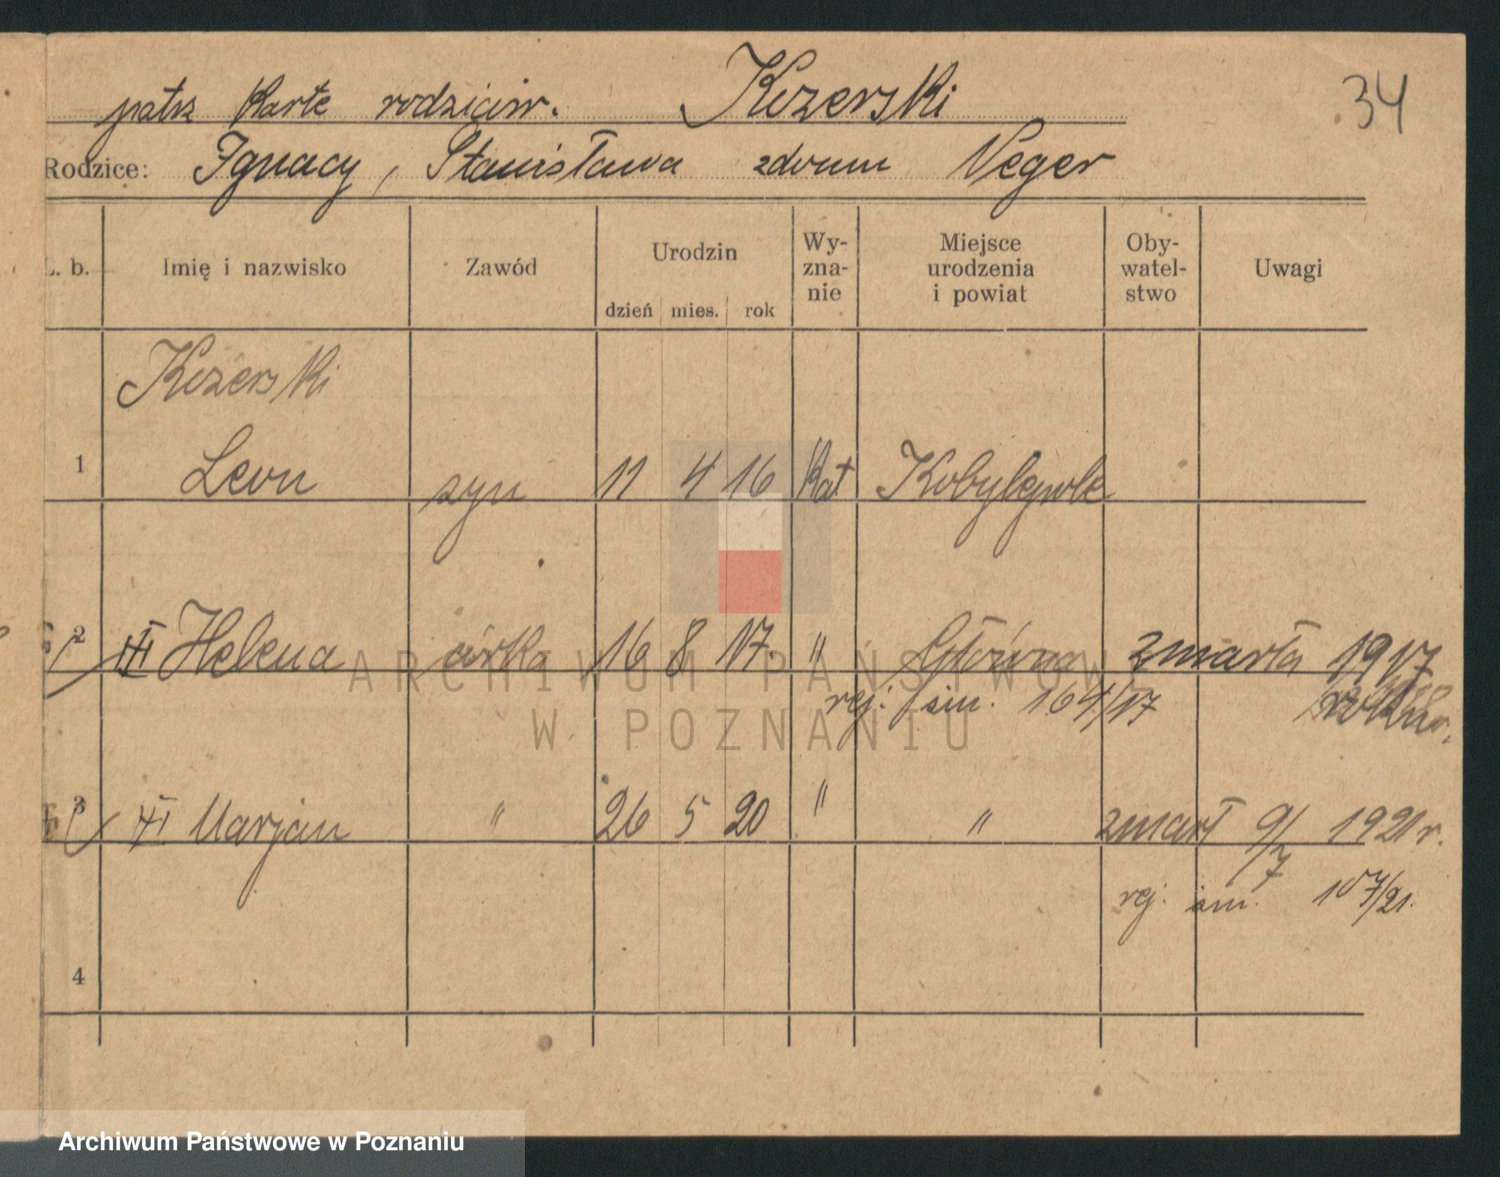 34
patrz Kartę rodziców. Kozerski
Rodzice: Ignacy, Stanisława zdomu Veger
L. b. Imię i nazwisko Zawód Urodzin dzień mies. rok Wy-zna-nie Miejsce urodzenia i powiat Oby-watel-stwo Uwagi
Kozerski
1 Leon syn 11 4 16 Kat Kobylepole
2 Helena córka 16 8 17. " Główna zmarła 1917
rej. śm. 164/17
3 Marjan " 26 5 20 " " zmarł 9/7 1921 r.
rej. śm. 107/21.
4
ARCHIWUM PAŃSTWOWE
W POZNANIU
Archiwum Państwowe w Poznaniu